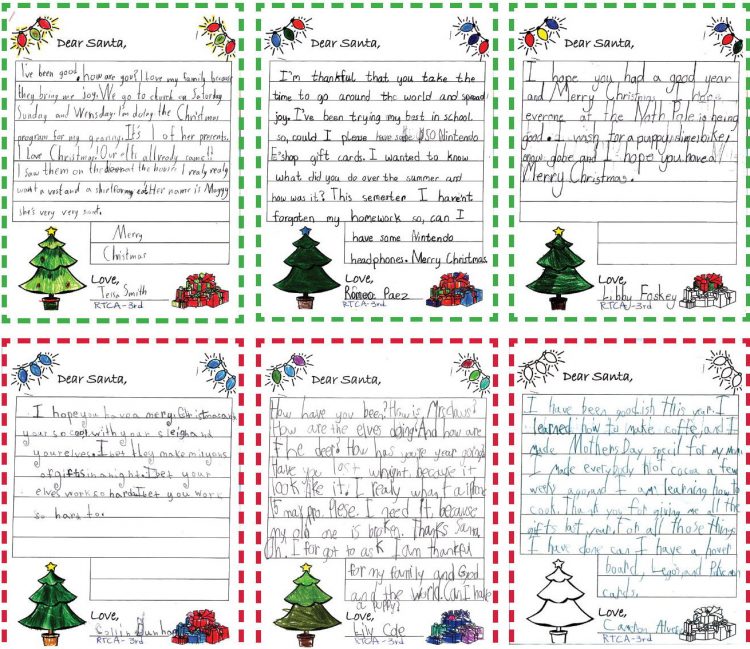 Dear Santa,
I've been good. how are you? I love my family because
they bring me Joy. We go to church on Saturday
Sunday and Wensday. I'm doing the Christmas
program for my granny. It's 1 of her presents.
I love Christmas! Our elfs allready came!!
I saw them on the
the horse I realy realy
want a vest and a shirt for my cat. Her name is Maggy
she's very very sweet.
Merry
Christmas
Love,
Tessa Smith
RTCA-3rd
Dear Santa,
I'm thankful that you take the
time to go around the world and spread
joy. I've been trying my best in school.
so, could I please have some $50 Nintendo
E'shop gift cards. I wanted to know
what did you do over the summer and
how was it? This semerter I haven't
forgotten my homework so, can I
have some Nintendo
headphones. Merry Christmas
Love,
Romeo Paez
RTCA-3rd
Dear Santa,
I hope you had a good year
and Merry Christmas. I hope
everone at the Noth Pole is being
good. I wish for a puppy, slime, biker,
snow globe and I hope you have a
Merry Christmas.
Love,
Libby Foskey
RTCA-3rd
Dear Santa,
I hope you hav a mery Christmas
your so cool with your sleigh and
your elves. I bet they make milyons
of gifts in a night. I bet your
elves work so hard I bet you work
so hard to.
Love,
Collin Dunham
RTCA-3rd
Dear Santa,
How have you been? How is Mrs. claus?
How are the elves doing? And how are
The deer? How has you're year going?
Have you lost wheight because it
look like it. I realy want a iPhone
15 max pro. Plese. I need it because
my old one is broken. Thanks Santa.
Oh. I for got to ask I am thankful
for my family and God
and the world. Can I have
a puppy?
Love,
Lily Cole
RTCA-3rd
Dear Santa,
I have been goodish this year. I
learned how to make coffe, and I
made Mothers Day specil for my mom.
I made everybody hot cocoa a few
weeks ago and I am learning how to
cook. Thank you for giving me all the
gifts last year. For all those things
I have done can I have a hover
board, Legos, and Pokemon
cards.
Love,
Cameron Alves
RTCA-3rd